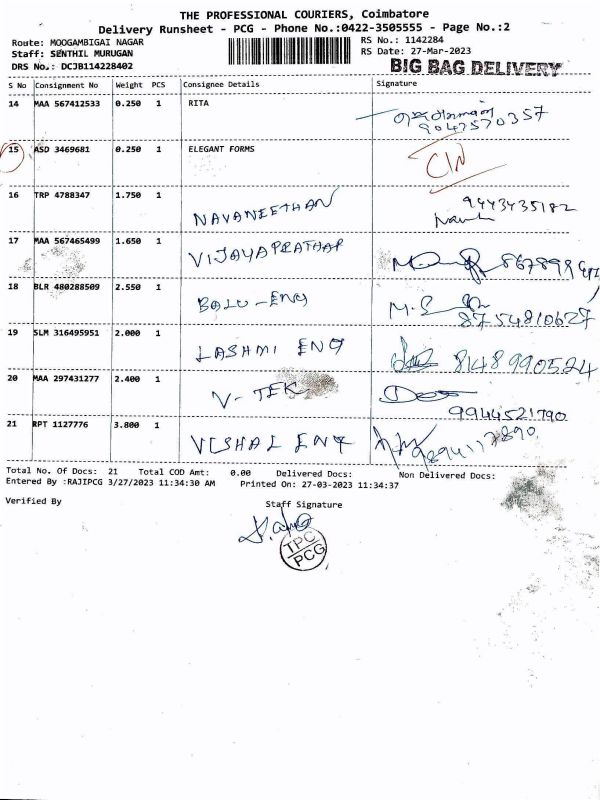 THE PROFESSIONAL COURIERS, Coimbatore
Delivery Runsheet - PCG - Phone No.:0422-3505555 - Page No.:2
Route: MOOGAMBIGAI NAGAR
RS No.: 1142284
Staff: SENTHIL MURUGAN
RS Date: 27-Mar-2023
DRS No.: DCJB114228402
BIG BAG DELIVERY
S No Consignment No Weight PCS Consignee Details Signature
14 MAA 567412533 0.250 1 RITA
9047570357
15 ASD 3469681 0.250 1 ELEGANT FORMS
16 TRP 4788347 1.750 1 NAVANEETHAN 9443435182
17 MAA 567465499 1.650 1 VIJAYAPRATHAP
18 BLR 480288509 2.550 1 BALU-ENG M.S
8754810627
19 SLM 316495951 2.000 1 LASHMI ENG 8148990524
20 MAA 297431277 2.400 1 V-TEK
9944521790
21 RPT 1127776 3.800 1 VISHAL ENG 9894117890
Total No. Of Docs: 21 Total COD Amt: 0.00 Delivered Docs: Non Delivered Docs:
Entered By :RAJIPCG 3/27/2023 11:34:30 AM Printed On: 27-03-2023 11:34:37
Verified By Staff Signature
TPC
PCG